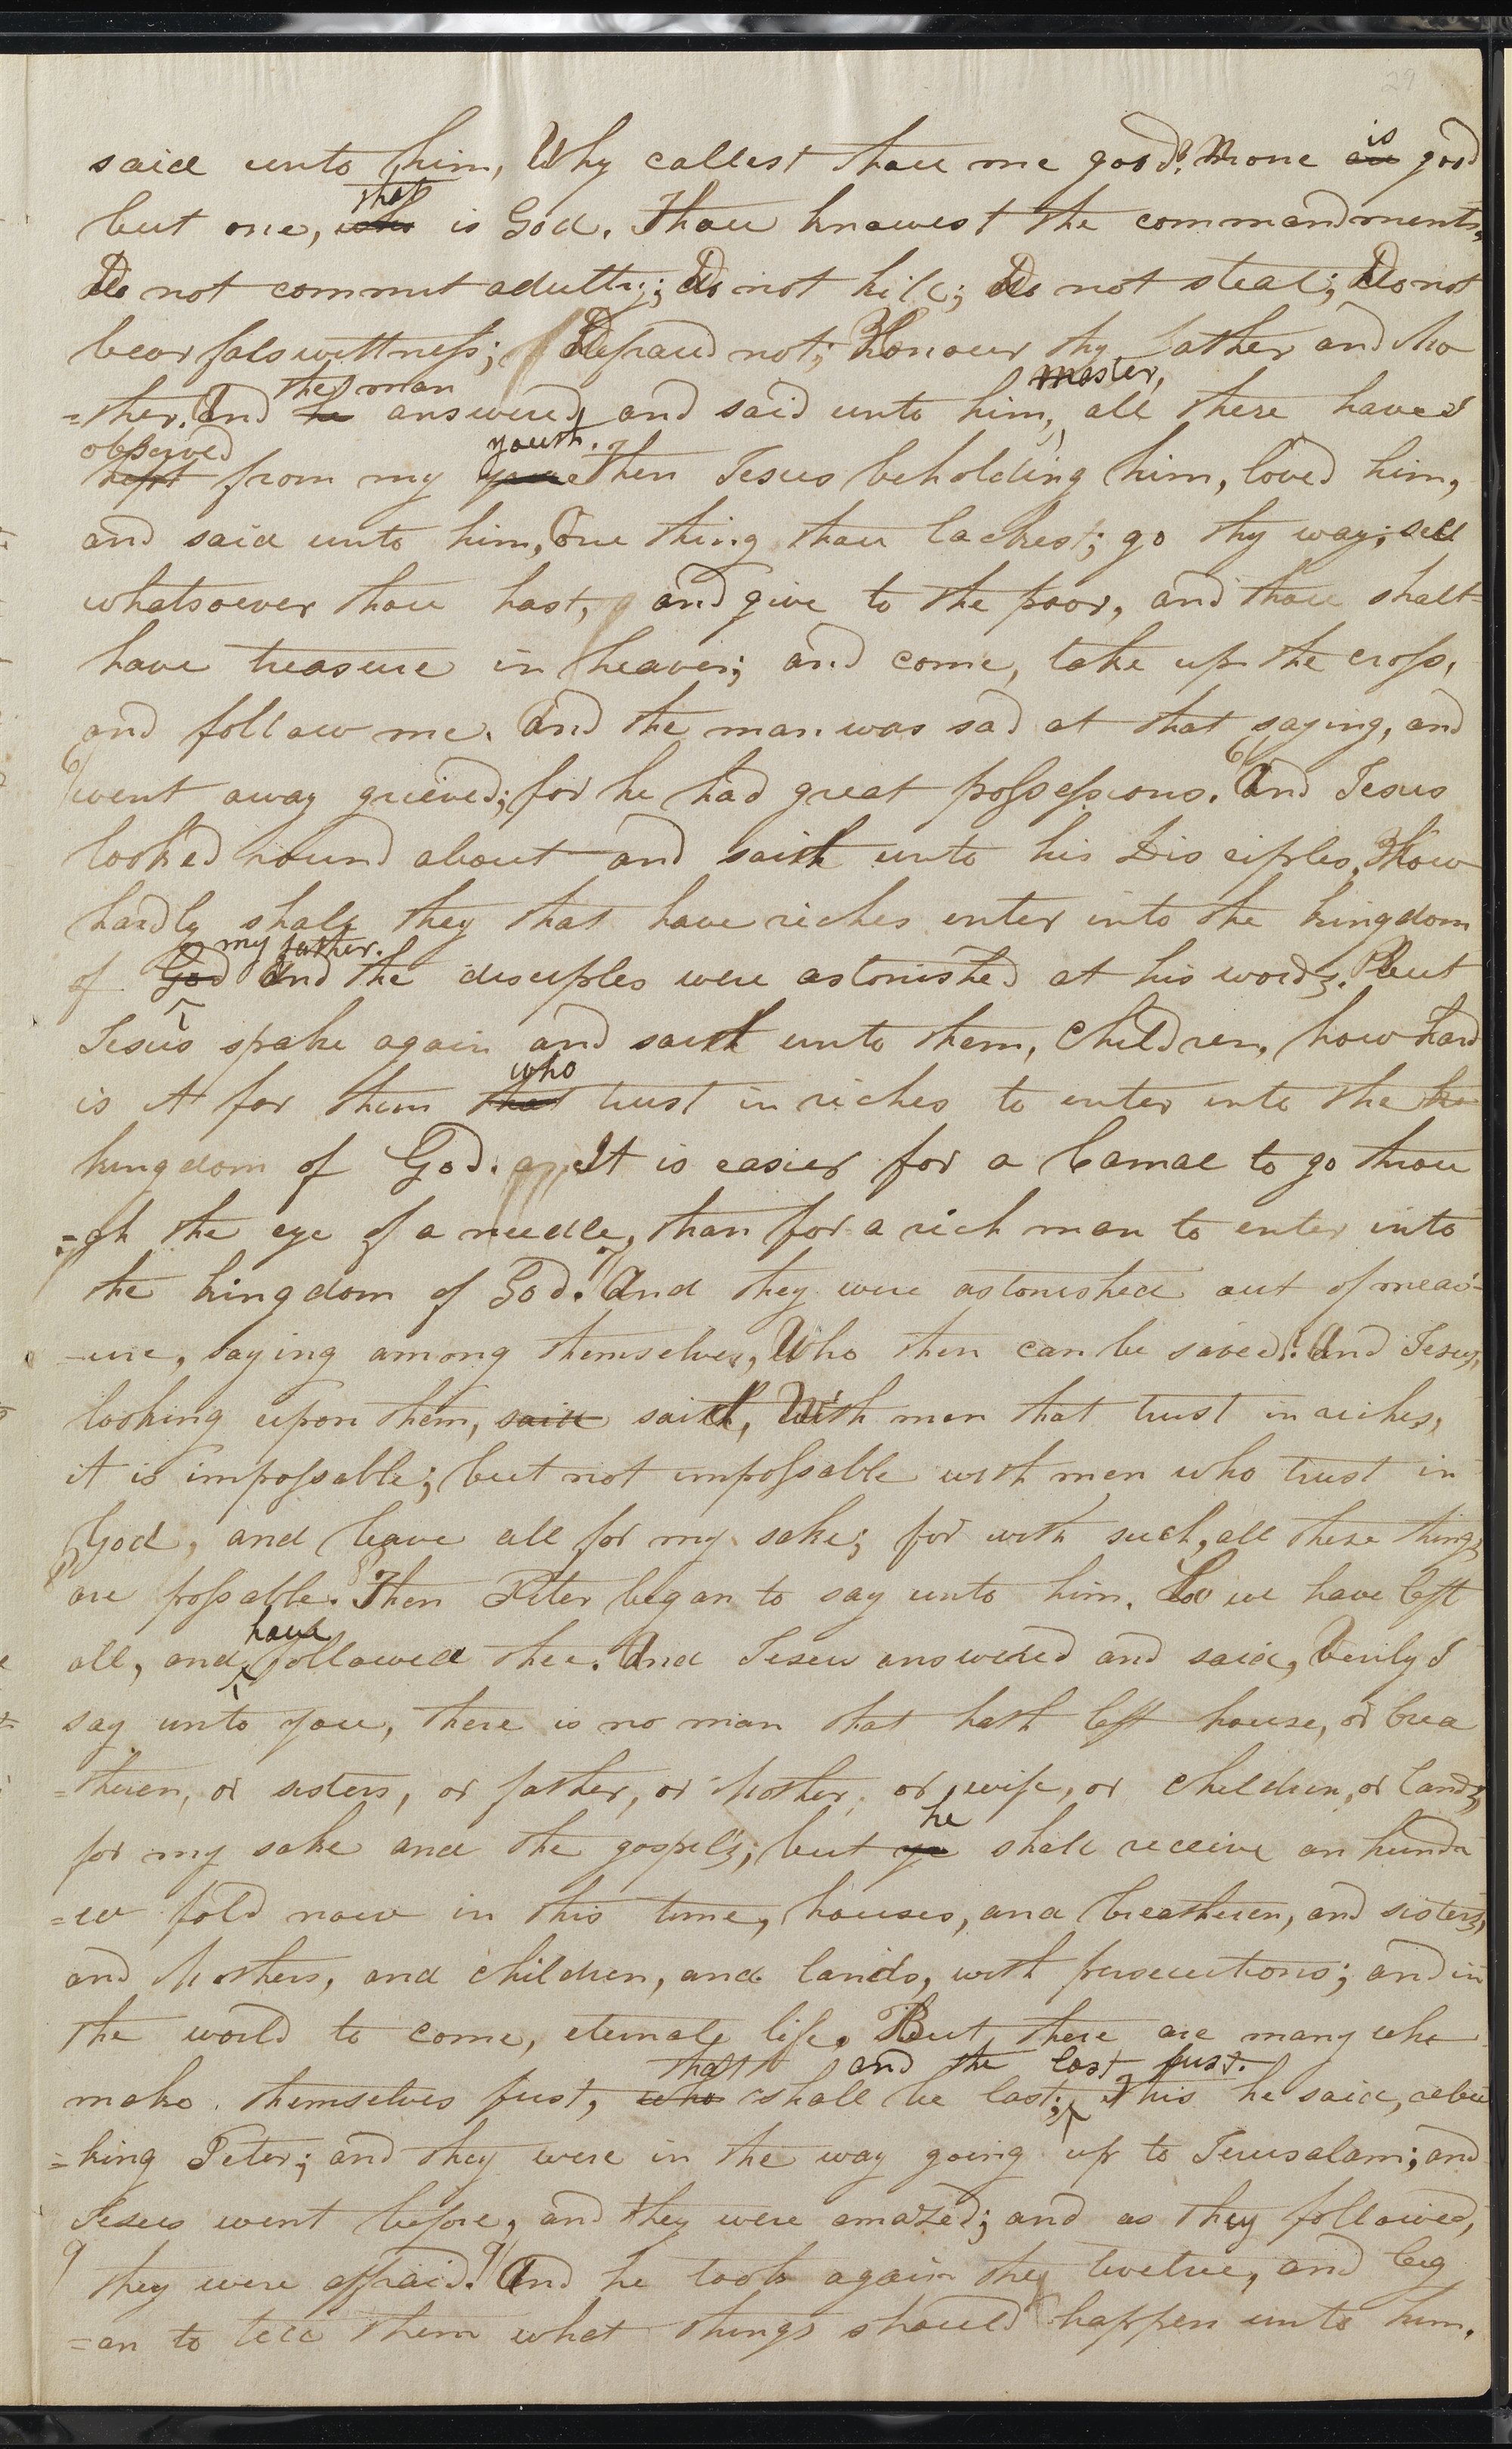 29
said unto him, Why callest thou me good? None are is good
but one, who that is God. Thou knowest the commandments,
Do not commit adultry; Do not kill; Do not steal; Do not
bear fals wittness; Defraud not; Honour thy father and Mo
=ther. And he the man answered, and said unto him, master, all these have I
kept observed from my youth. Then Jesus beholding him, loved him,
and said unto him, One thing thou lackest; go thy way; sell
whatsoever thou hast, and give to the poor, and thou shalt
have treasure in heaven; and come, take up the cross,
and follow me. And the man was sad at that saying, and
6/ went away grieved; for he had great possessions. 6/ And Jesus
looked round about and saith unto his Disciples, How
hardly shall they that have riches enter into the kingdom
of God my father. And the disciples were astonished at his words. But
Jesus spake again and saith unto them, Children, how hard
is it for them that who trust in riches to enter into the ki
kingdom of God. It is easier for a Camal to go throu
=gh the eye of a needle, than for a rich man to enter into
the kingdom of God. 7/ And they were astonished out of meas
-ure, saying among themselves, Who then can be saved? And Jesus,
looking upon them, said saith, With men that trust in riches,
it is impossable; but not impossable with men who trust in
God, and leave all for my sake; for with such, all these things
8/ are possable. 8/ Then Peter began to say unto him, Lo we have left
all, and have followed thee. And Jesus answered and said, Verily I
say unto you, there is no man that hath left house, or brea
=theren, or sisters, or father, or Mother, or wife, or children, or lands,
for my sake and the gospel's; but ye he shall receive an hundr
=ed fold now in this time, houses, and breatheren, and sisters,
and Mothers, and children, and lands, with persecutions; and in
the world to come, eternal life. But there are many who
make themselves first, who that shall be last; and the last first. This he said, rebu
=king Peter; and they were in the way going up to Jerusalam; and
Jesus went before, and they were amazed; and as they followed,
9 they were affraid. 9/ And he took again the twelve, and beg
=an to tell them what things should happen unto him.